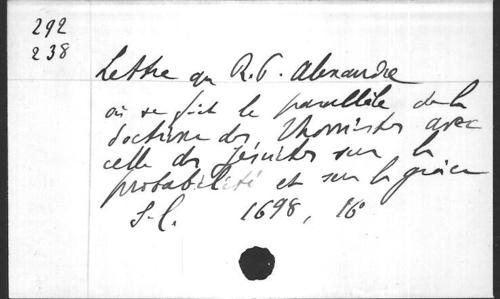 292
238
Lettre au R.P. Alexandre
où se fait le parallèle de la
doctrine des Thomistes avec
celle des Jésuites sur la
probabilité et sur la grâce
S.l. 1698, 16°